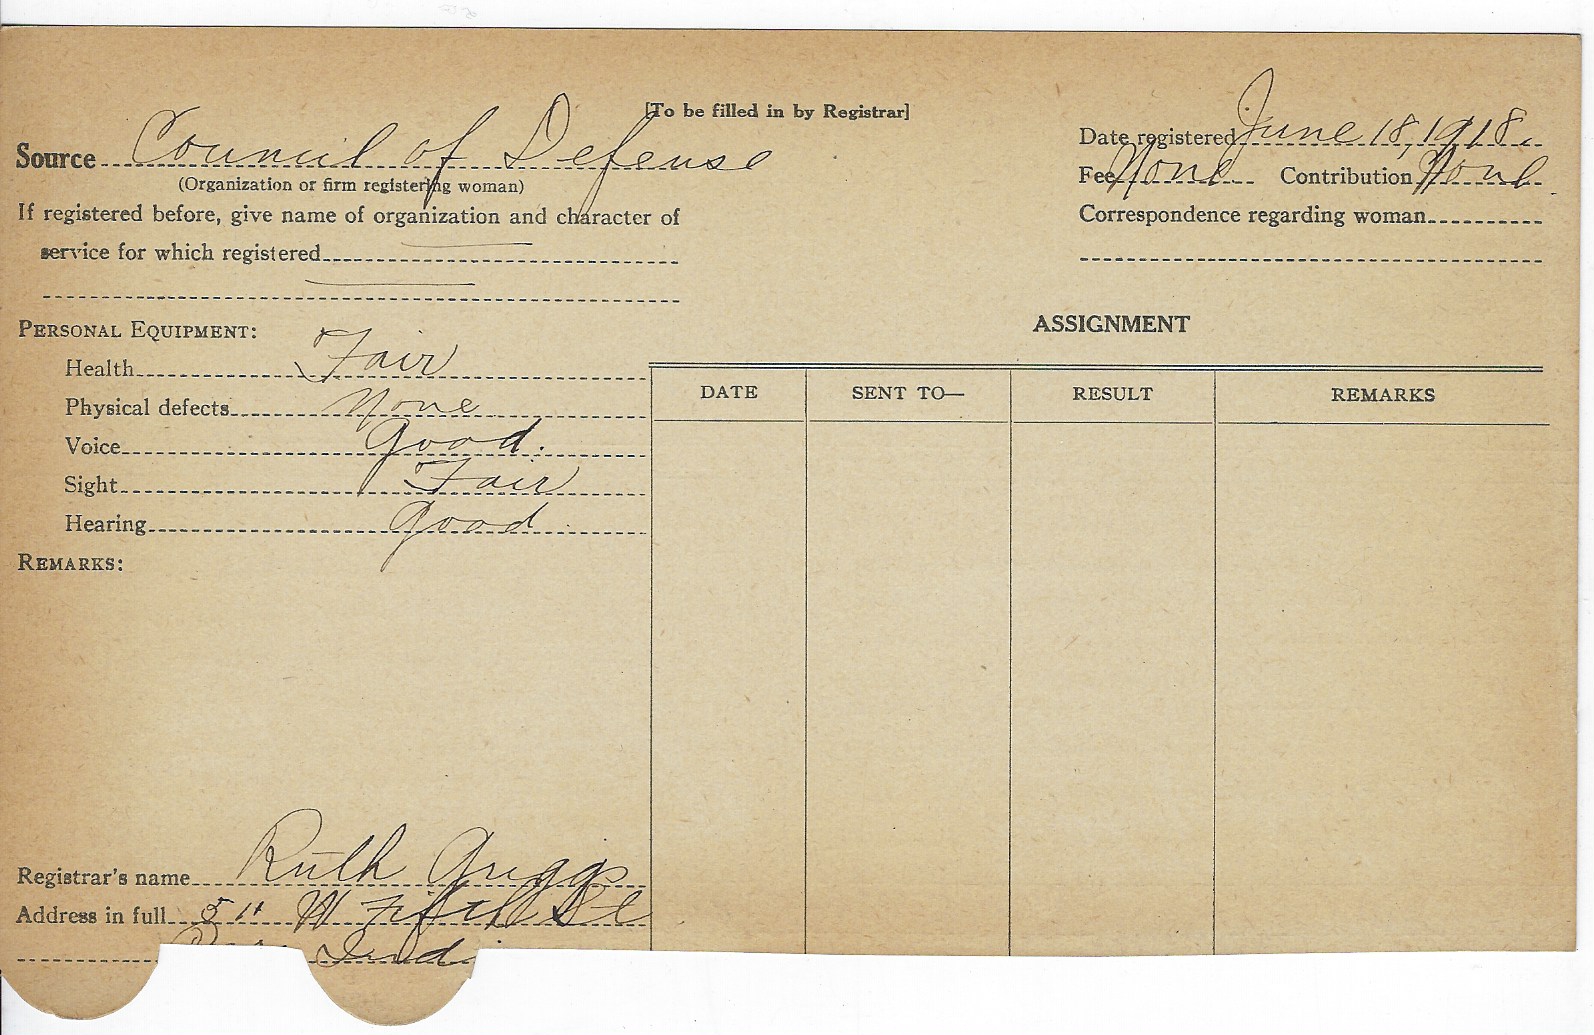 [To be filled in by Registrar]
Source Council of Defense
(Organization or firm registering woman)
If registered before, give name of organization and character of
service for which registered
Date registered June 18, 1918.
Fee None Contribution None
Correspondence regarding woman
PERSONAL EQUIPMENT:
Health Fair
Physical defects None
Voice good.
Sight Fair
Hearing good
REMARKS:
ASSIGNMENT
DATE SENT TO— RESULT REMARKS
Registrar's name Ruth Griggs
Address in full 511 W Fifth St
Ind